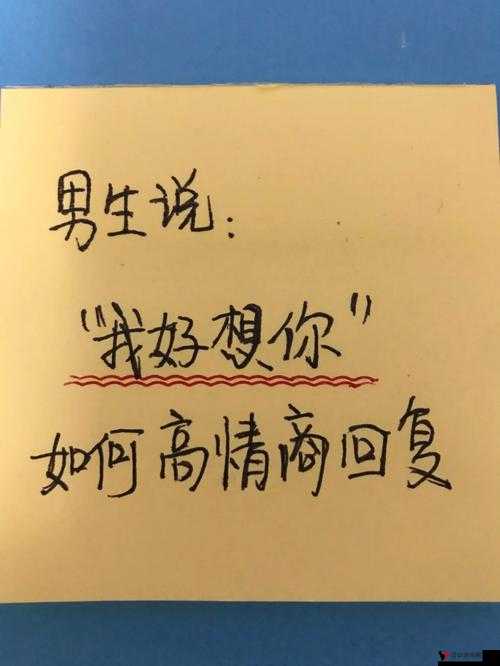 男生说:
"我好想你"
如何高情商回复